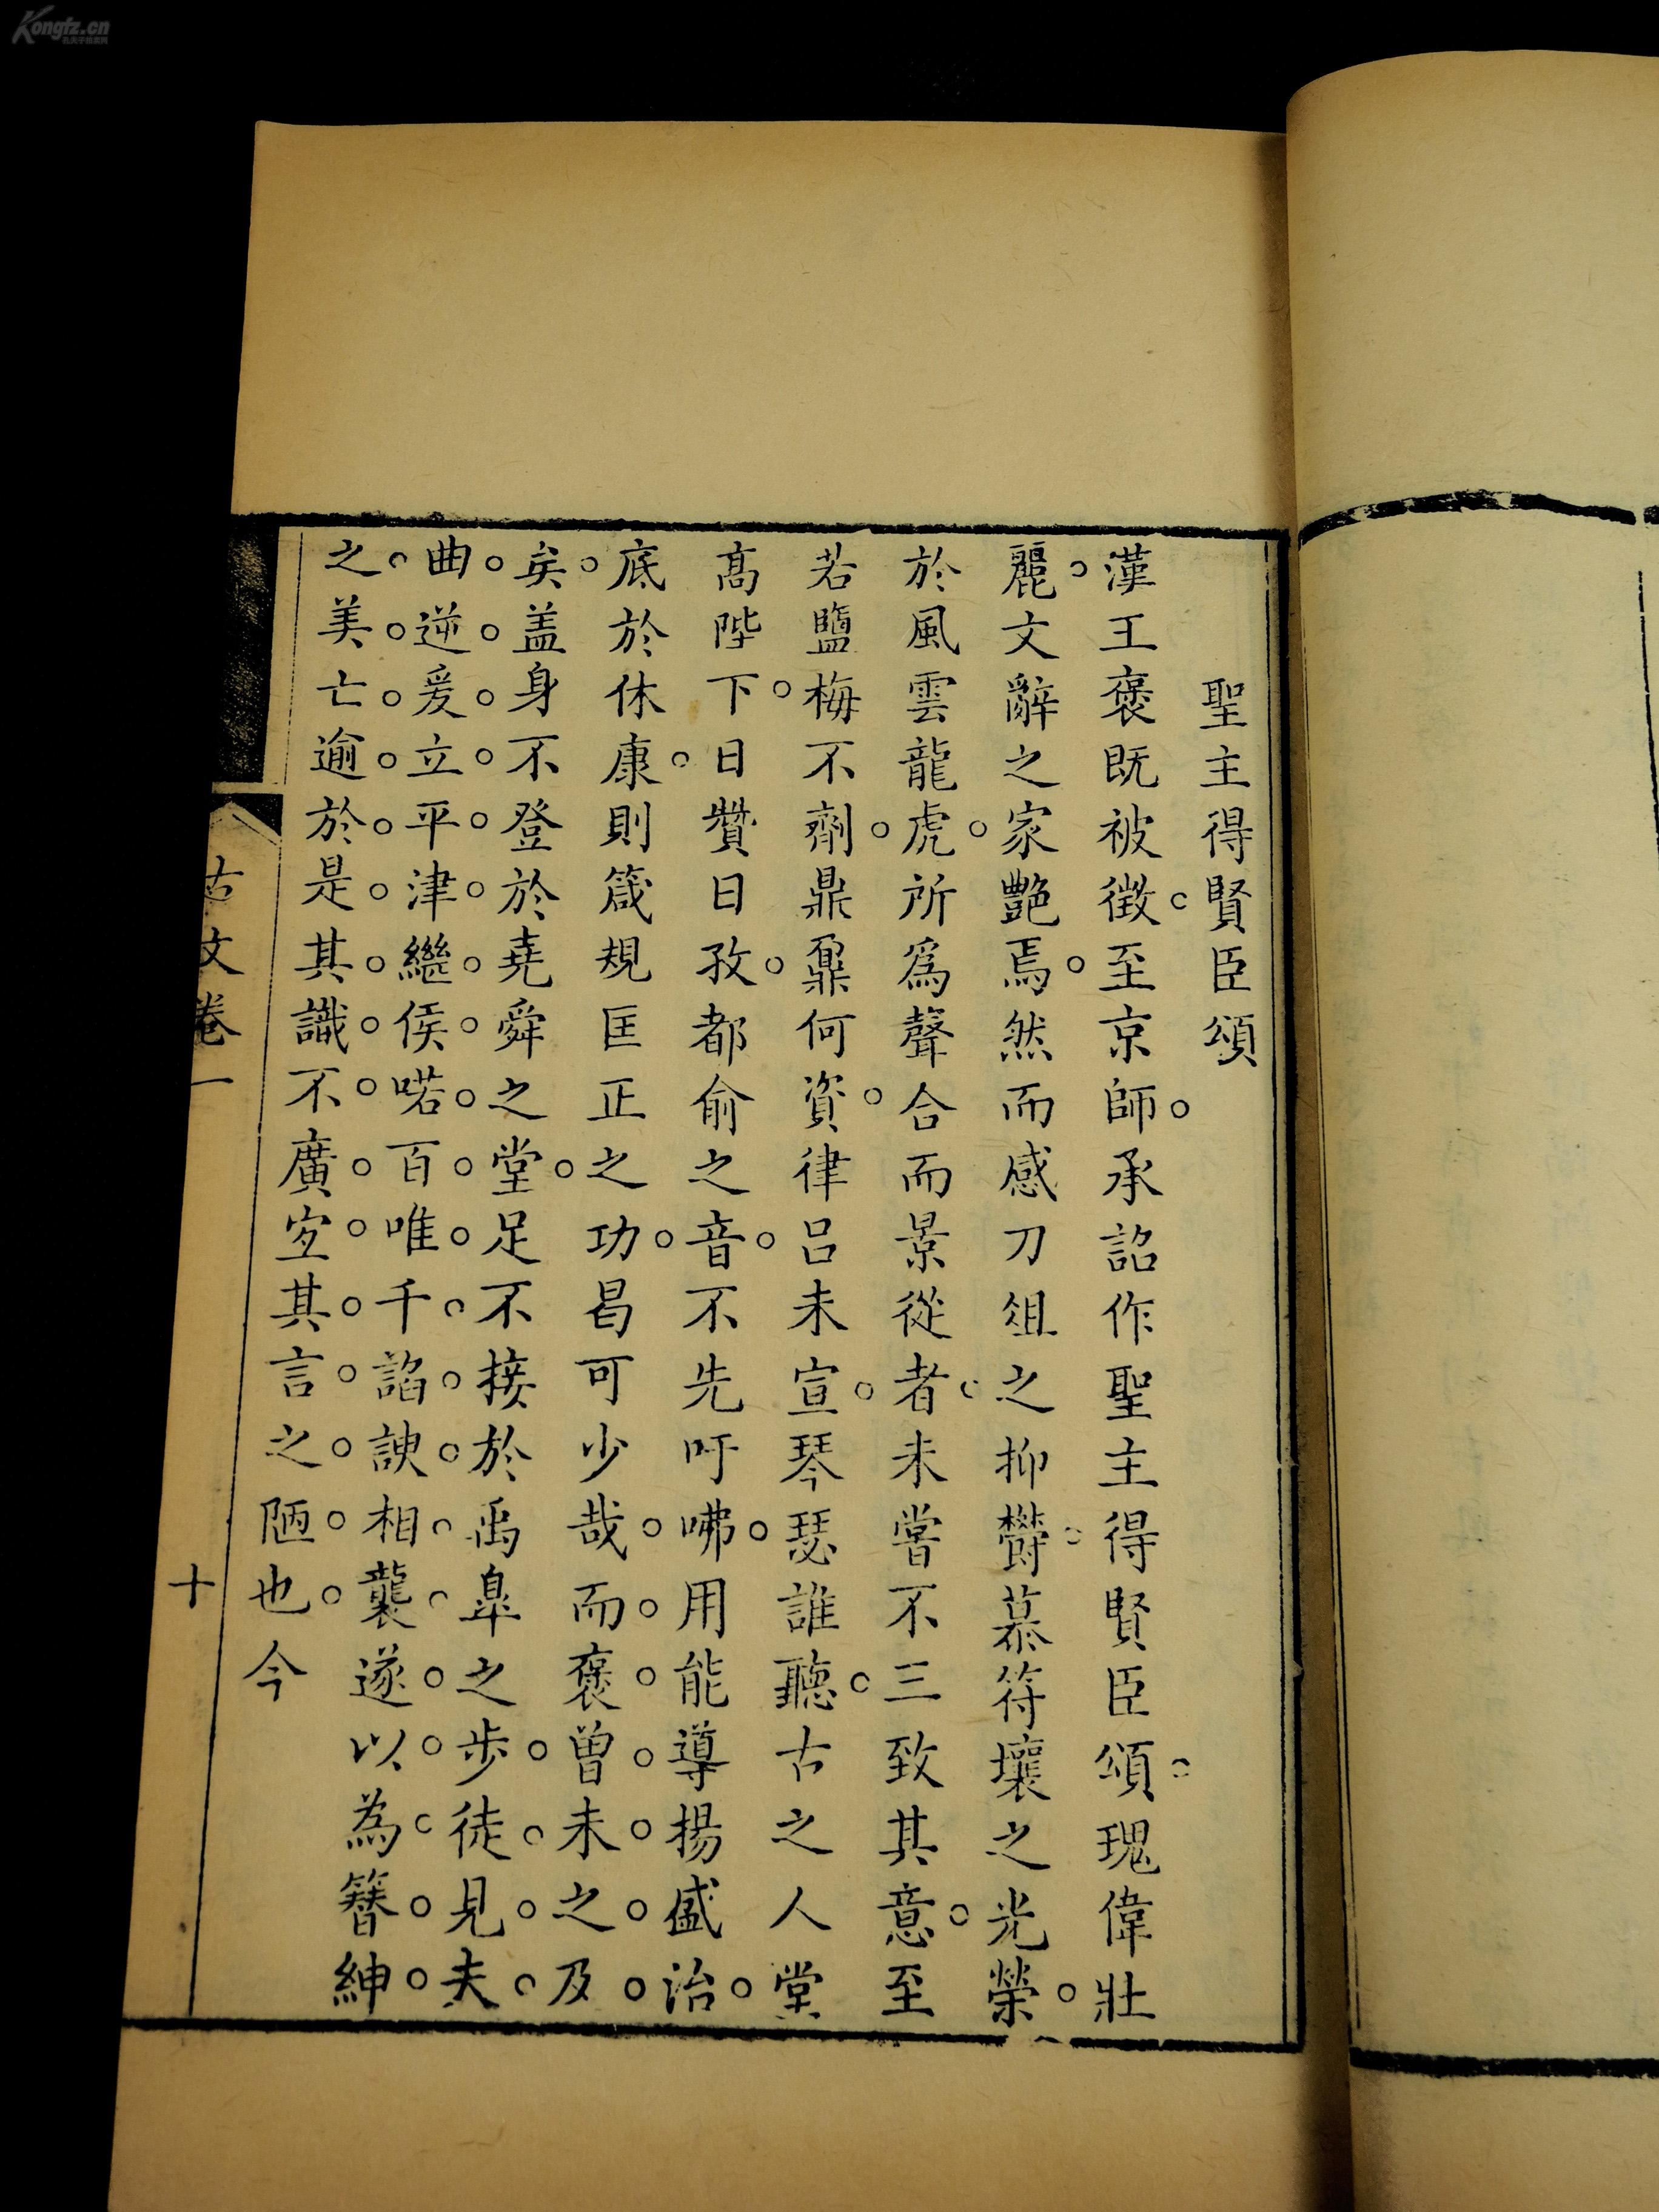 聖主得賢臣頌
漢王褒既被徵至京師承詔作聖主得賢臣頌瑰偉壯
麗文辭之家艷焉然而感刀俎之抑欝慕符壤之光榮
於風雲龍虎所爲聲合而景從者未嘗不三致其意至
若鹽梅不劑鼎鼐何資律呂未宣琴瑟誰聽古之人堂
高陛下日贊日孜都俞之音不先吁咈用能導揚盛治
底於休康則箴規匡正之功曷可少哉而褒曾未之及
矣盖身不登於堯舜之堂足不接於禹臯之步徒見夫
曲逆爰立平津繼侯喏百唯千諂諛相襲遂以為簪紳
之美亡逾於是其識不廣宐其言之陋也今
古文卷一
十
Kongfz.cn